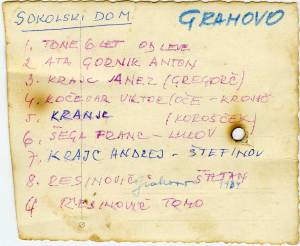 SOKOLSKI DOM
GRAHOVO
1. TONE 6 LET OD LEVE
2. ATA GORNIK ANTON
3. KRAJC JANEZ (GREGORČ)
4. KOČEVAR VIKTOR (OČE - KROJAČ
5. KRANJC (KOROŠČEK)
6. ŠEGA FRANC - LUKOV
7. KRAJC ANDREJ - ŠTEFINOV
8. RESINOVIČ ŠTEFAN
Grahovo
9 RESINOVIČ TOMO